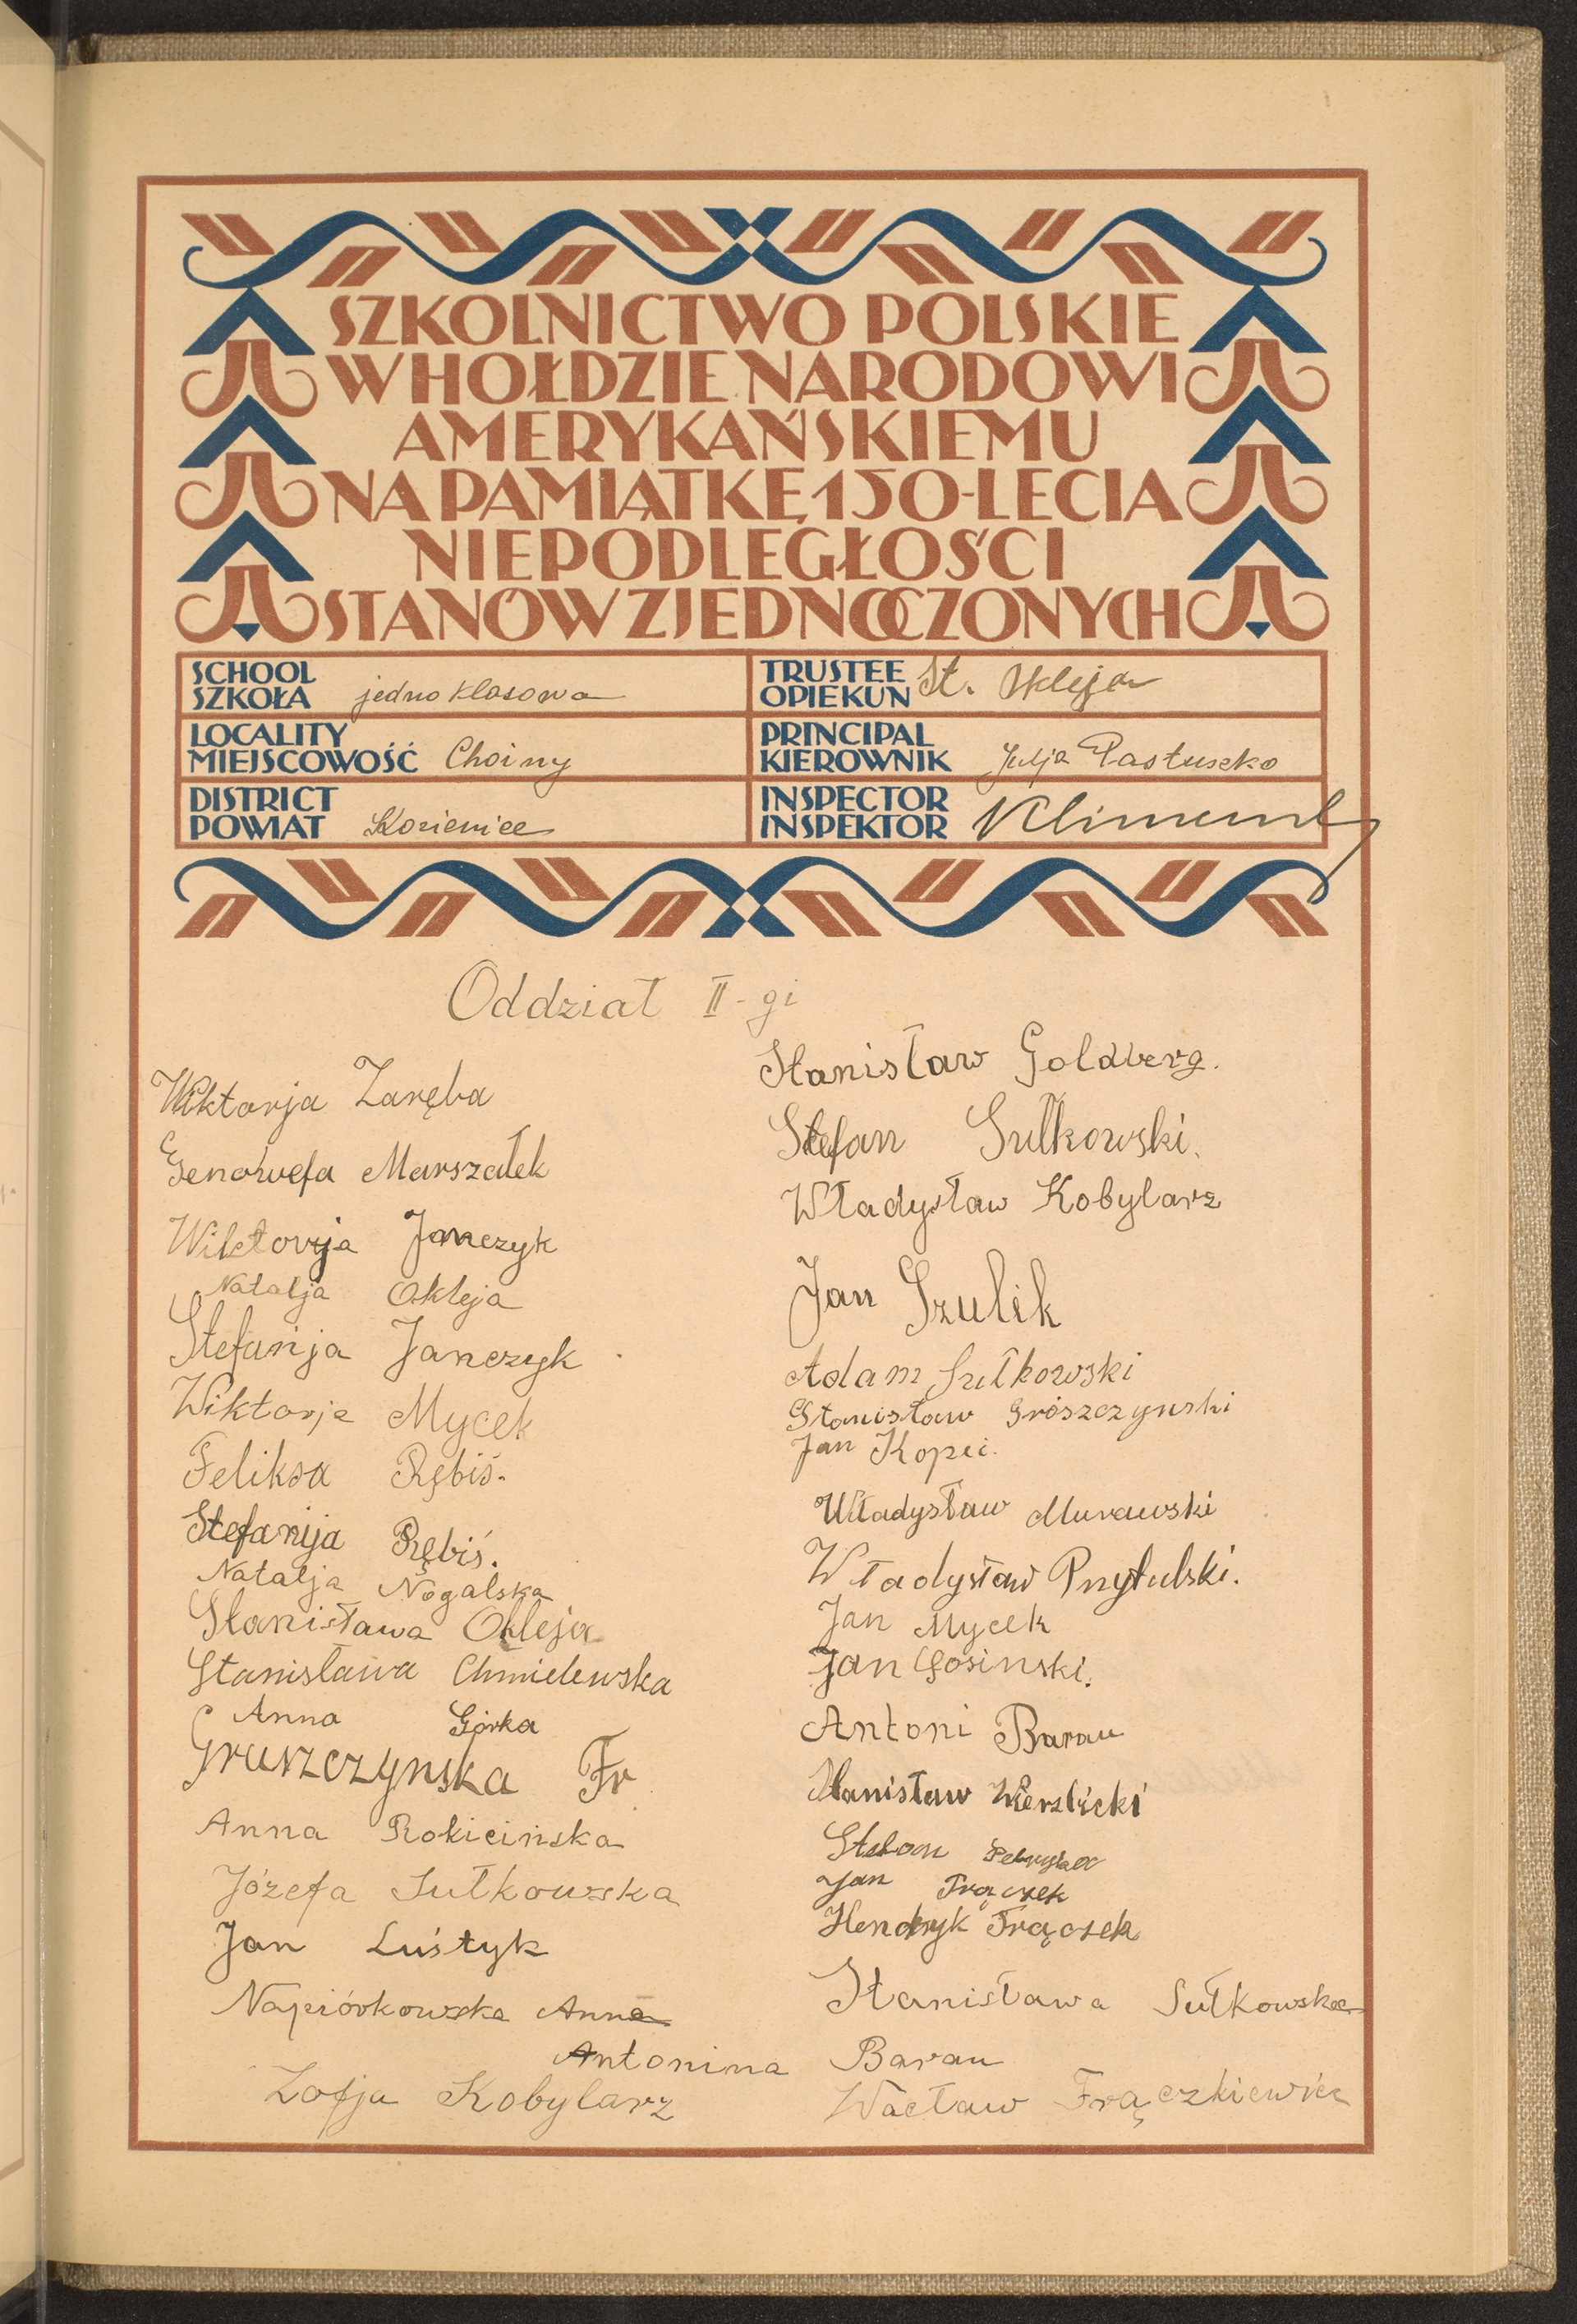 SZKOLNICTWO POLSKIE
W HOŁDZIE NARODOWI
AMERYKAŃSKIEMU
NA PAMIĄTKĘ 150-LECIA
NIEPODLEGŁOŚCI
STANÓW ZJEDNOCZONYCH
SCHOOL
SZKOŁA jednoklasowa
TRUSTEE
OPIEKUN St. Okleja
LOCALITY
MIEJSCOWOŚĆ Choiny
PRINCIPAL
KIEROWNIK Julja Pastuszko
DISTRICT
POWIAT Kozienice
INSPECTOR
INSPEKTOR
Oddział II-gi
Wiktorja Zaręba
Genowefa Marszałek
Wiktorja Janczyk
Natalja Okleja
Stefanja Janczyk
Wiktorja Mycek
Feliksa Rębiś.
Stefanija Rębiś.
Natalja Nogalska
Stanisława Okleja
Stanisława Chmielewska
Anna Górka
Gruszczynska Fr
Anna Rokicińska
Józefa Sułkowska
Jan Luśtyk
Napiórkowska Anna
Antonina Baran
Zofja Kobylarz
Stanisław Goldberg.
Stefan Sułkowski.
Władysław Kobylarz
Jan Szulik
Adam Sułkowski
Stanisław Grószczynski
Jan Kopeć.
Władysław Murawski
Władysław Przytulski.
Jan Mycek
Jan Gosinski.
Antoni Baran
Stanisław Wierzbicki
Jan Frączek
Hendryk Frączek
Stanisława Sułkowska
Wacław Frączkiewicz